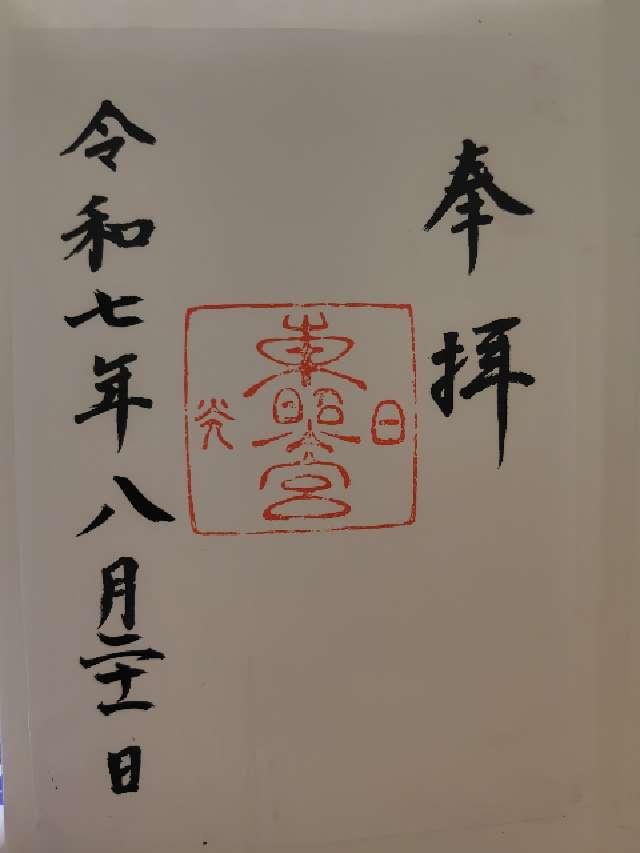 奉拝
日
東照宮
光
令和七年八月二十一日